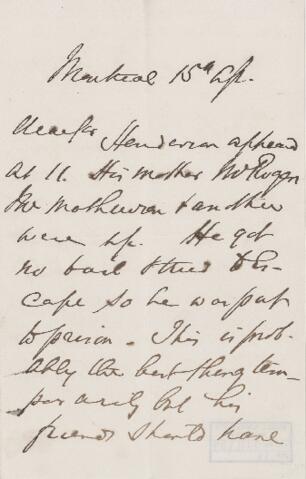 Montreal 15th Ap.
Dear Sir
Henderson appeared
at 11. His mother Mr Roger
Mr Mathewson & another
were up. He got
no bail & tried to Es-
cape so he was put
to prison. This is prob-
ably the best thing tem-
porarily but his
friends should have